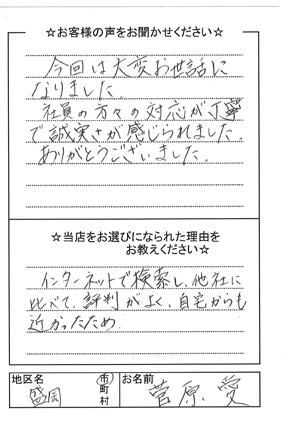 ☆お客様の声をお聞かせください☆
今回は大変お世話に
なりました。
社員の方々の対応が丁寧
で誠実さが感じられました。
ありがとうございました。
☆当店をお選びになられた理由を
お教えください☆
インターネットで検索し、他社に
比べて、評判がよく、自宅からも
近かったため。
地区名 盛岡 市町村 お名前 菅原 愛